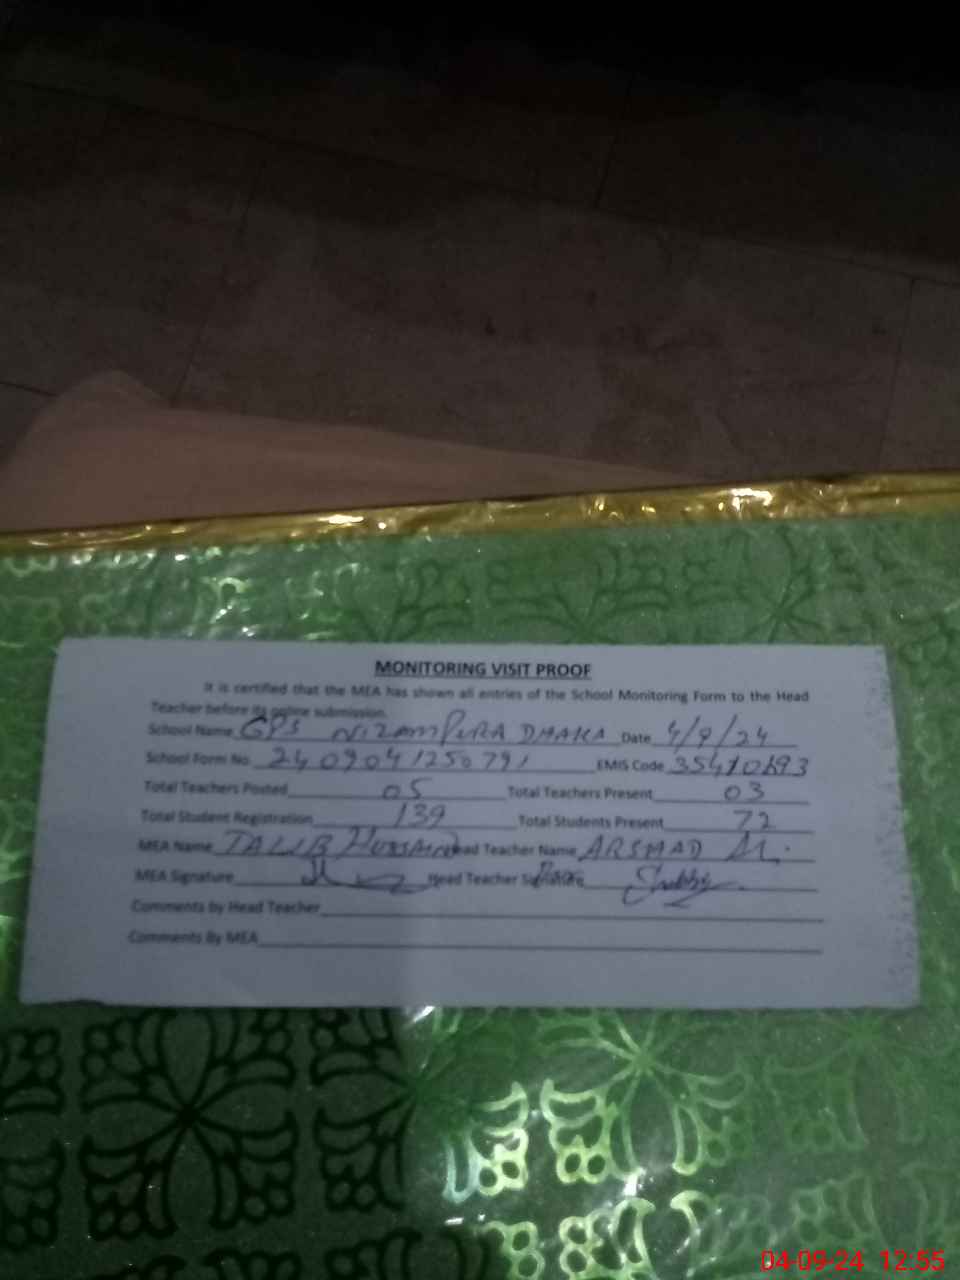 MONITORING VISIT PROOF
It is certified that the MEA has shown all entries of the School Monitoring Form to the Head
Teacher before its online submission.
School Name GPS NIZAMPURA DHAKA Date 4/9/24
School Form No. 2409041250791 EMIS Code
Total Teachers Posted 05 Total Teachers Present 03
Total Student Registration 139 Total Students Present 72
MEA Name TALIB HUSSAIN Head Teacher Name ARSHAD
MEA Signature Head Teacher Signature
Comments by Head Teacher
Comments By MEA
04-09-24 12:55